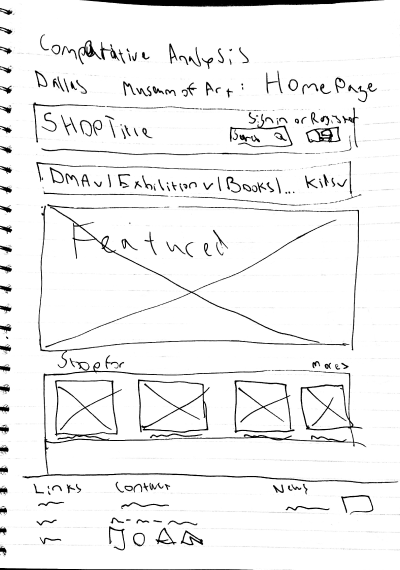 Comparative Analysis
Dallas Museum of Art: HomePage
SHOPTitle
Sign in or Register
Search
DMA v | Exhibition v | Books | ... Kids v
Featured
Shop for
more >
Links Contact News